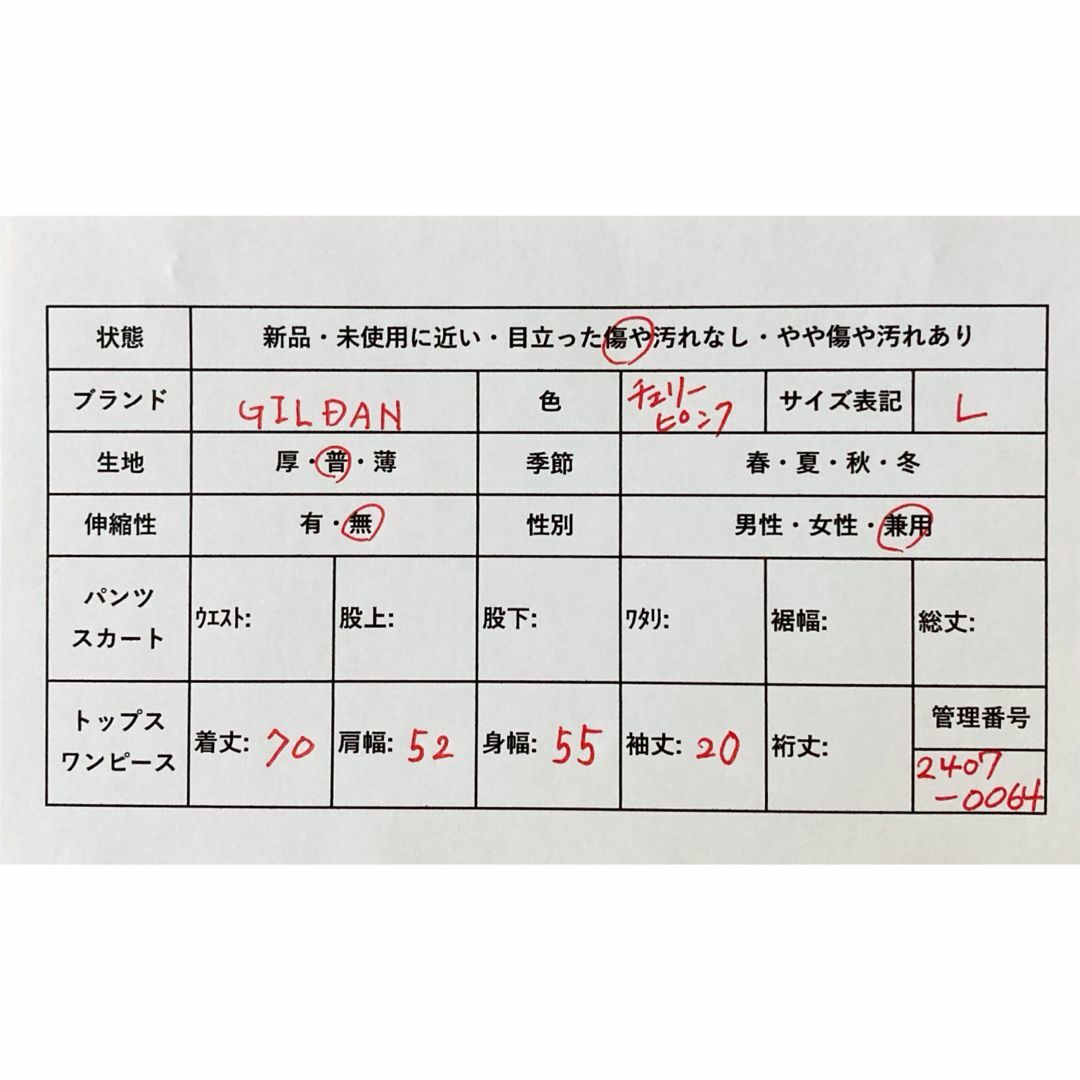 状態 新品・未使用に近い・目立った傷や汚れなし・やや傷や汚れあり
ブランド GILDAN 色 チェリー
ピンク サイズ表記 L
生地 厚・普・薄 季節 春・夏・秋・冬
伸縮性 有・無 性別 男性・女性・兼用
パンツ
スカート ｳｴｽﾄ: 股上: 股下: ﾜﾀﾘ: 裾幅: 総丈:
トップス
ワンピース 着丈: 70 肩幅: 52 身幅: 55 袖丈: 20 裄丈:
管理番号
2407
-0064